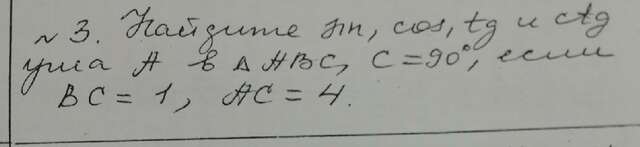 № 3. Найдите sin, cos, tg и ctg
угла A в △ ABC, C = 90°, если
BC = 1, AC = 4.